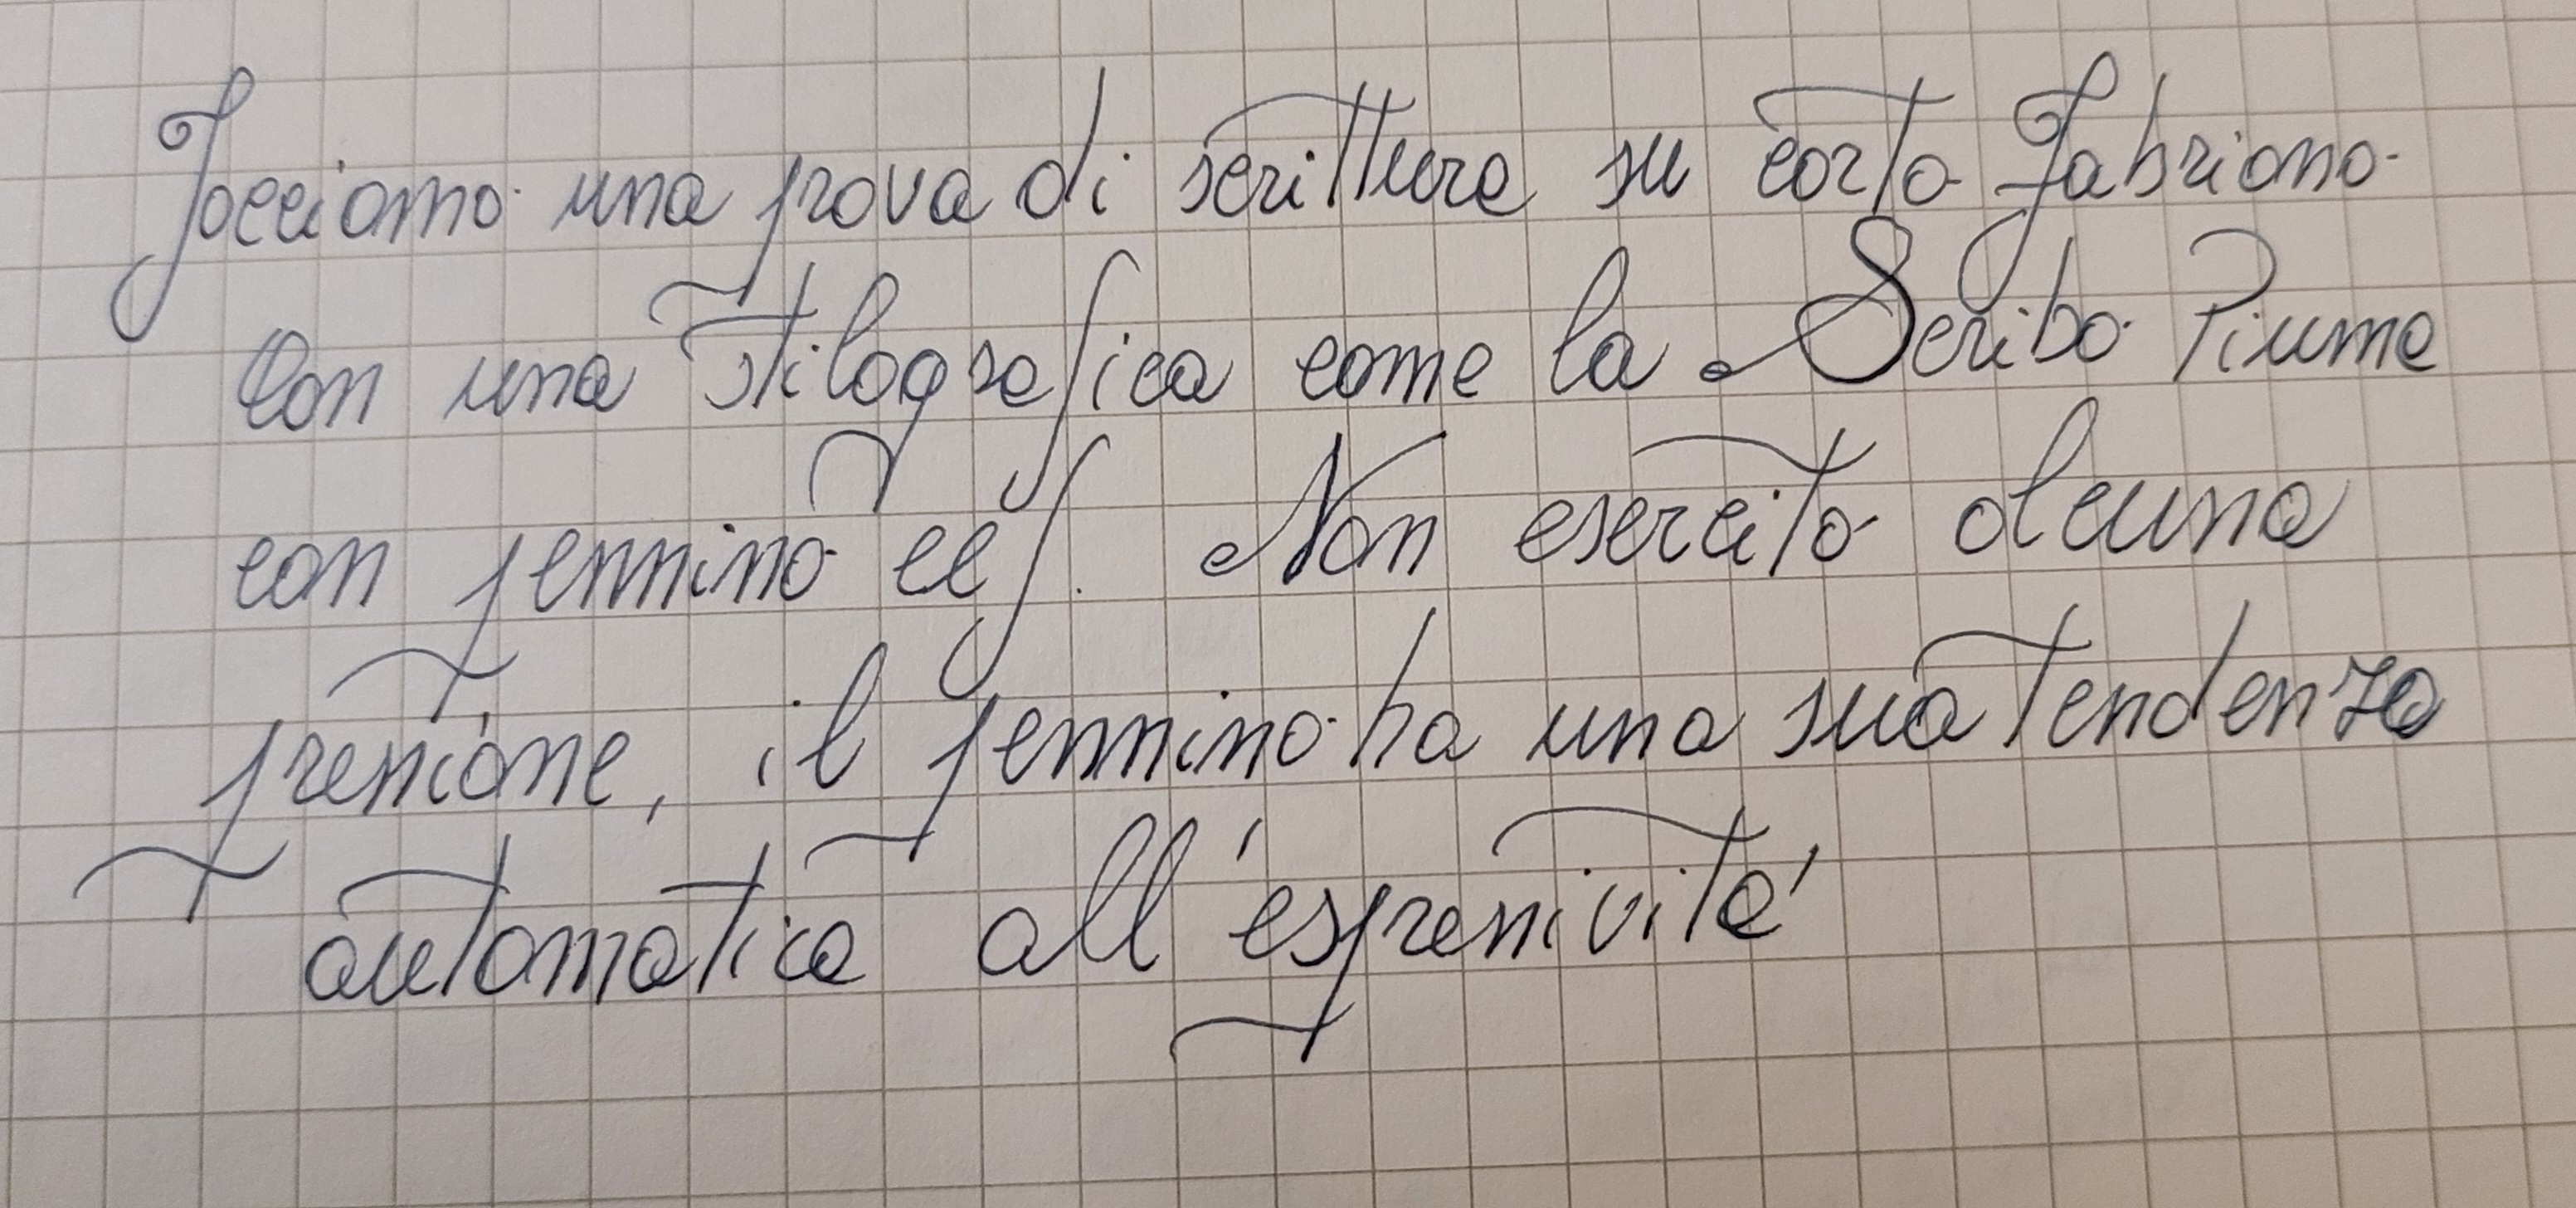 Facciamo una prova di scrittura su carta Fabriano
Con una stilografica come la Scribo Piuma
con pennino eef. Non esercito alcuna
pressione, il pennino ha una sua tendenza
automatica all'espressività